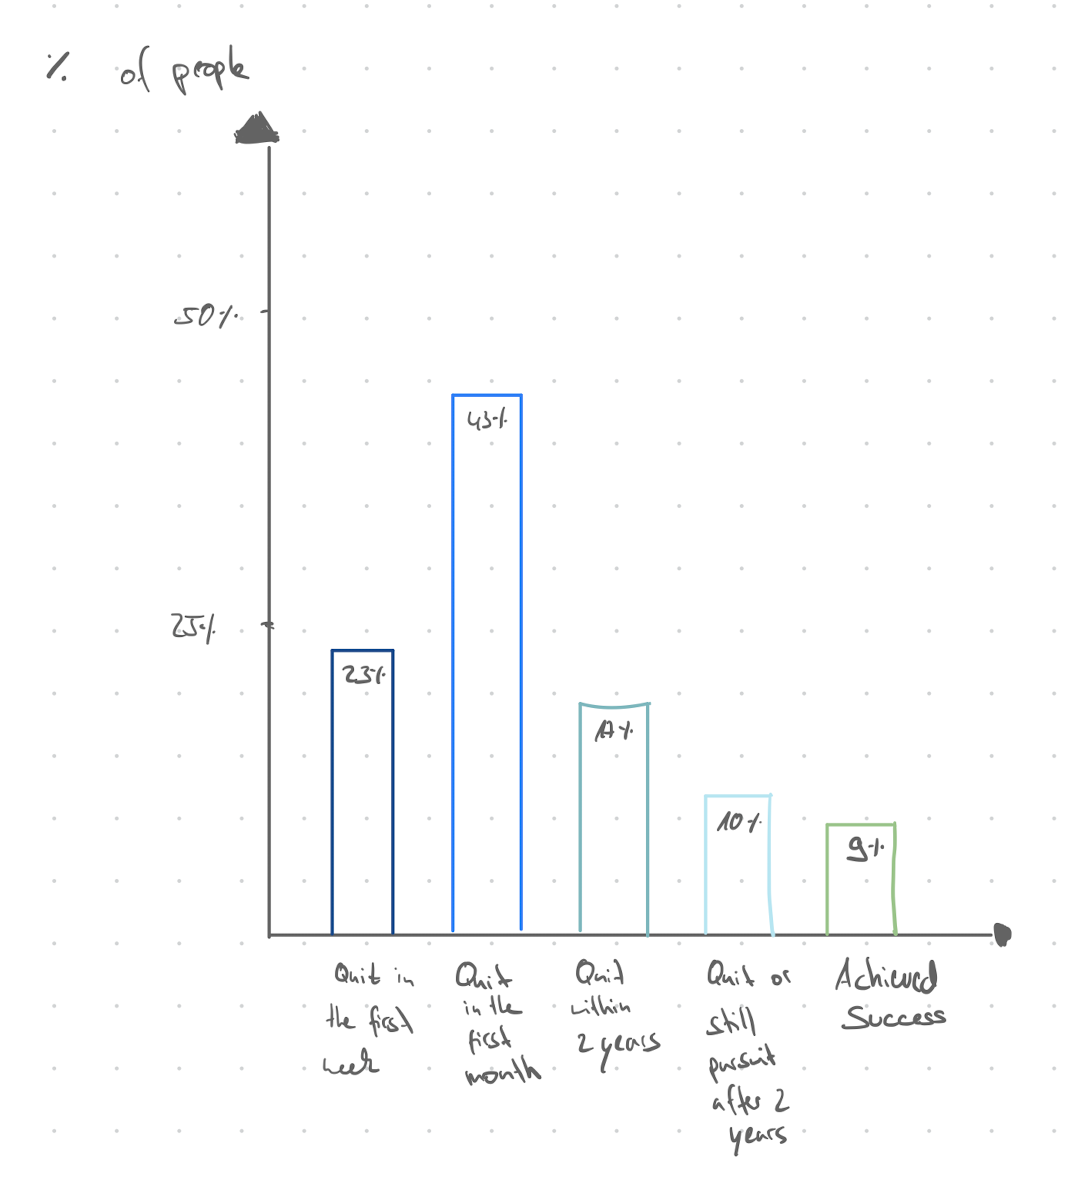 % of people
50%
25%
23%
43%
17%
10%
9%
Quit in
the first
week
Quit
in the
first
month
Quit
within
2 years
Quit or
still
pursuit
after 2
years
Achieved
Success